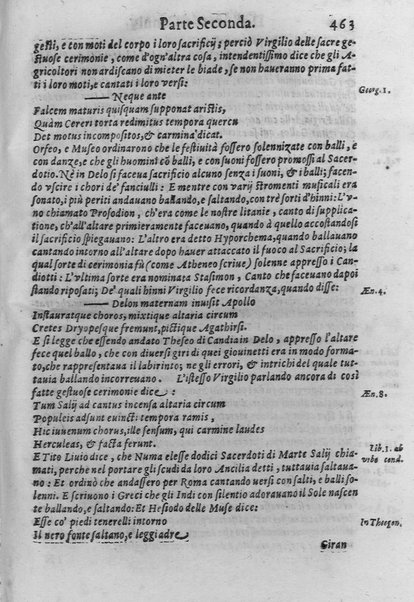 Parte Seconda. 463
gesti, e con moti del corpo i loro sacrificij; perciò Virgilio delle sacre ge-
stuose cerimonie, come d'ogn'altra cosa, intendentissimo dice che gli A-
gricoltori non ardiscano di mieter le biade, se non haueranno prima fat-
ti i loro moti, e cantati i loro versi:
Georg. 1.
Neque ante
Falcem maturis quisquam supponat aristis,
Quàm Cereri torta redimitus tempora quercu
Det motus incompositos, & carmina dicat.
Orfeo, e Museo ordinarono che le festiuità fossero solennizate con balli, e
con danze, e che gli huomini cō balli, e con suoni fossero promossi al Sacer-
dotio. Nè in Delo si faceua sacrificio alcuno senza i suoni, & i balli; facen-
do vscire i chori de' fanciulli: E mentre con varij stromenti musicali era
sonato, i più periti andauano ballando, e saltando, con trè sorti d'hinni: L'v-
no chiamato Prosodion, ch'era come le nostre litanie, canto di supplica-
tione, ch'all'altare primieramente faceuano, quando à quello accostandosi
il sacrificio spiegauano: L'altro era detto Hyporchema, quando ballauano
cantando intorno all'altare dopo hauer attaccato il fuoco al Sacrificio; la
qual sorte di cerimonia fù (come Atheneo scriue) solenne appresso i Can-
diotti: L'vltima sorte era nominata Stasimon, Canto che faceuano dapoi
stando riposati; De' quali hinni Virgilio fece ricordanza, quando disse:
Æn. 4.
Delon maternam inuisit Apollo
Instauratque choros, mixtique altaria circum
Cretes Dryopesque fremunt, pictique Agathirsi.
E si legge che essendo andato Theseo di Candia in Delo, appresso l'altare
fece quel ballo, che con diuersi giri di quei giouinetti era in modo forma-
to, che rappresentaua il labirinto; ne gli errori, & intrichi del quale tut-
tauia ballando incorreuano. L'istesso Virgilio parlando ancora di così
fatte gestuose cerimonie dice:
Æn. 8.
Tum Salij ad cantus incensa altaria circum
Populeis adsunt euincti tempora ramis,
Hic iuuenum chorus, ille senum, qui carmine laudes
Herculeas, & facta ferunt.
lib. 1. ab
vrbe cond.
E Tito Liuio dice, che Numa elesse dodici Sacerdoti di Marte Salij chia-
mati, perche nel portare gli scudi da loro Ancilia detti, tuttauia saltaua-
no: Et ordinò che andassero per Roma cantando versi con salti, e balli so-
lenni. E scriuono i Greci che gli Indi con silentio adorauano il Sole nascen
te ballando, e saltando: Et Hesiodo delle Muse dice:
In Theogon.
Esse co' piedi tenerelli intorno
Il nero fonte saltano, e leggiadre
Giran